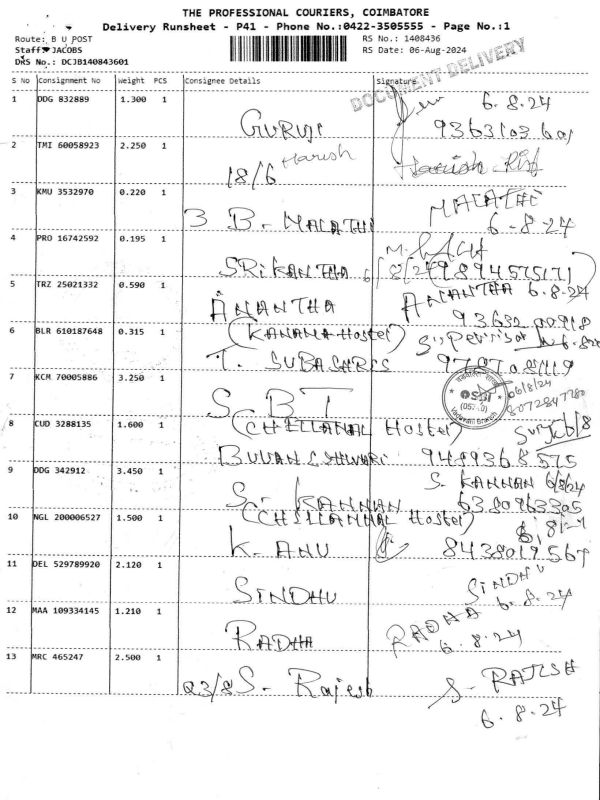 THE PROFESSIONAL COURIERS, COIMBATORE
Delivery Runsheet - P41 - Phone No.:0422-3505555 - Page No.:1
Route: B U POST
RS No.: 1408436
Staff: JACOBS
RS Date: 06-Aug-2024
DRS No.: DCJB140843601
DOCUMENT DELIVERY
S No Consignment No Weight PCS Consignee Details Signature
1 DDG 832889 1.300 1 GURUJI 6.8.24
2 TMI 60058923 2.250 1 18/6 Harish Harish
3 KMU 3532970 0.220 1 3 B. MALATHI MALATHI
6-8-24
4 PRO 16742592 0.195 1 SRIKANTHA (9894575171)
5 TRZ 25021332 0.590 1 ANANTHA ANANTHA 6.8.24
6 BLR 610187648 0.315 1 (KANANA Hostel) Supervisor
T. SUBASHREE
7 KCM 70005886 3.250 1 SBT 06/8/24
8072847780
8 CUD 3288135 1.600 1 (CHELLAMMAL Hostel)
BUVANESHWARI
9 DDG 342912 3.450 1 S. KANNAN S. KANNAN 6/8/24
10 NGL 200006527 1.500 1 (CHELLAMMAL Hostel)
K. ANU 8438019567
11 DEL 529789920 2.120 1 SINDHU SINDHU
6.8.24
12 MAA 109334145 1.210 1 RADHA RADHA
6.8.24
13 MRC 465247 2.500 1 S. Rajesh S. RAJESH
6.8.24